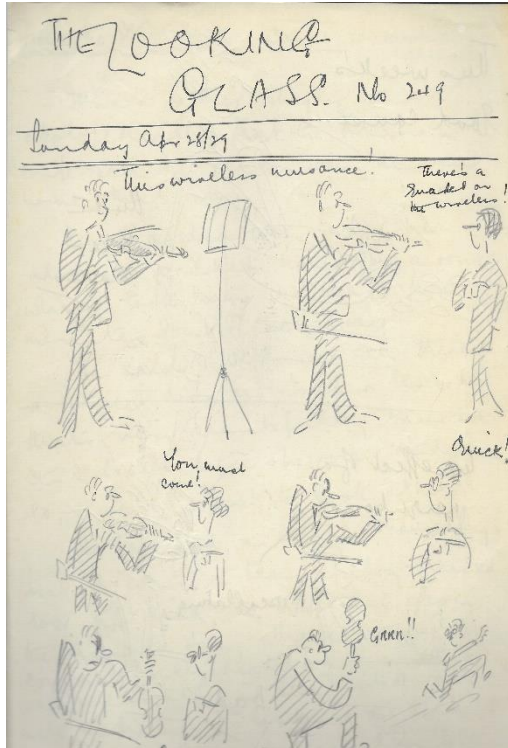 THE LOOKING
GLASS. No 249
Sunday Apr 28/29
This wireless nuisance!
There's a
on
the wireless!
You must
come!
Quick!
Grrr!!